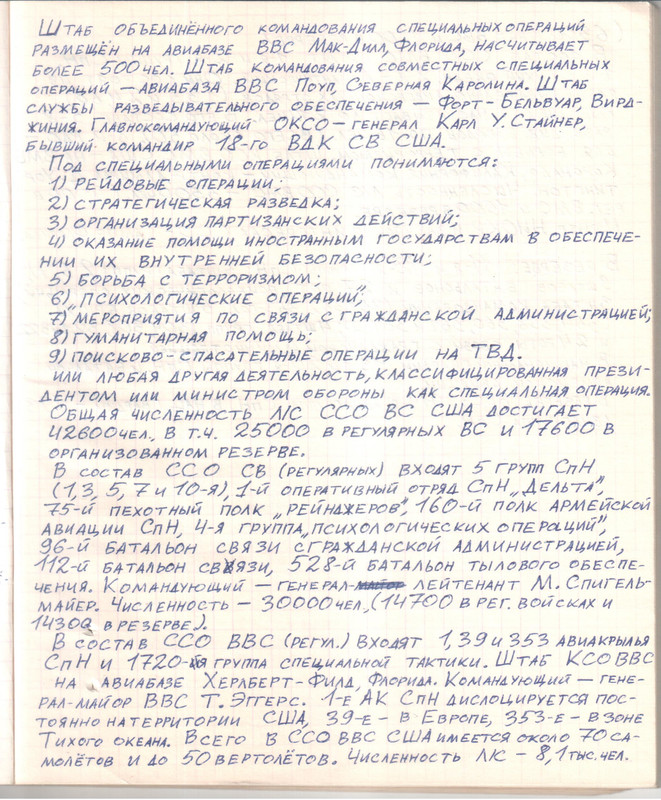 Штаб объединённого командования специальных операций
размещён на авиабазе ВВС Мак-Дилл, Флорида, насчитывает
более 500 чел. Штаб командования совместных специальных
операций – авиабаза ВВС Поуп, Северная Каролина. Штаб
службы разведывательного обеспечения – Форт-Бельвуар, Вирд-
жиния. Главнокомандующий ОКСО – генерал Карл У. Стайнер,
бывший командир 18-го ВДК СВ США.
Под специальными операциями понимаются:
1) рейдовые операции;
2) стратегическая разведка;
3) организация партизанских действий;
4) оказание помощи иностранным государствам в обеспече-
нии их внутренней безопасности;
5) борьба с терроризмом;
6) „психологические операции";
7) мероприятия по связи с гражданской администрацией;
8) гуманитарная помощь;
9) поисково-спасательные операции на ТВД.
или любая другая деятельность, классифицированная прези-
дентом или министром обороны как специальная операция.
Общая численность л/с ССО ВС США достигает
42600 чел., в т.ч. 25000 в регулярных ВС и 17600 в
организованном резерве.
В состав ССО СВ (регулярных) входят 5 групп СпН
(1, 3, 5, 7 и 10-я), 1-й оперативный отряд СпН „Дельта",
75-й пехотный полк „рейнджеров", 160-й полк армейской
авиации СпН, 4-я группа „психологических операций",
96-й батальон связи с гражданской администрацией,
112-й батальон связи, 528-й батальон тылового обеспе-
чения. Командующий – генерал-майор лейтенант М. Спигель-
майер. Численность – 30000 чел., (14700 в рег. войсках и
14300 в резерве).
В состав ССО ВВС (регул.) входят 1, 39 и 353 авиакрылья
СпН и 1720-я группа специальной тактики. Штаб КСО ВВС
на авиабазе Херлберт-Филд, Флорида. Командующий – гене-
рал-майор ВВС Т. Эггерс. 1-е АК СпН дислоцируется пос-
тоянно на территории США, 39-е – в Европе, 353-е – в зоне
Тихого океана. Всего в ССО ВВС США имеется около 70 са-
молётов и до 50 вертолётов. Численность л/с – 8,1 тыс. чел.